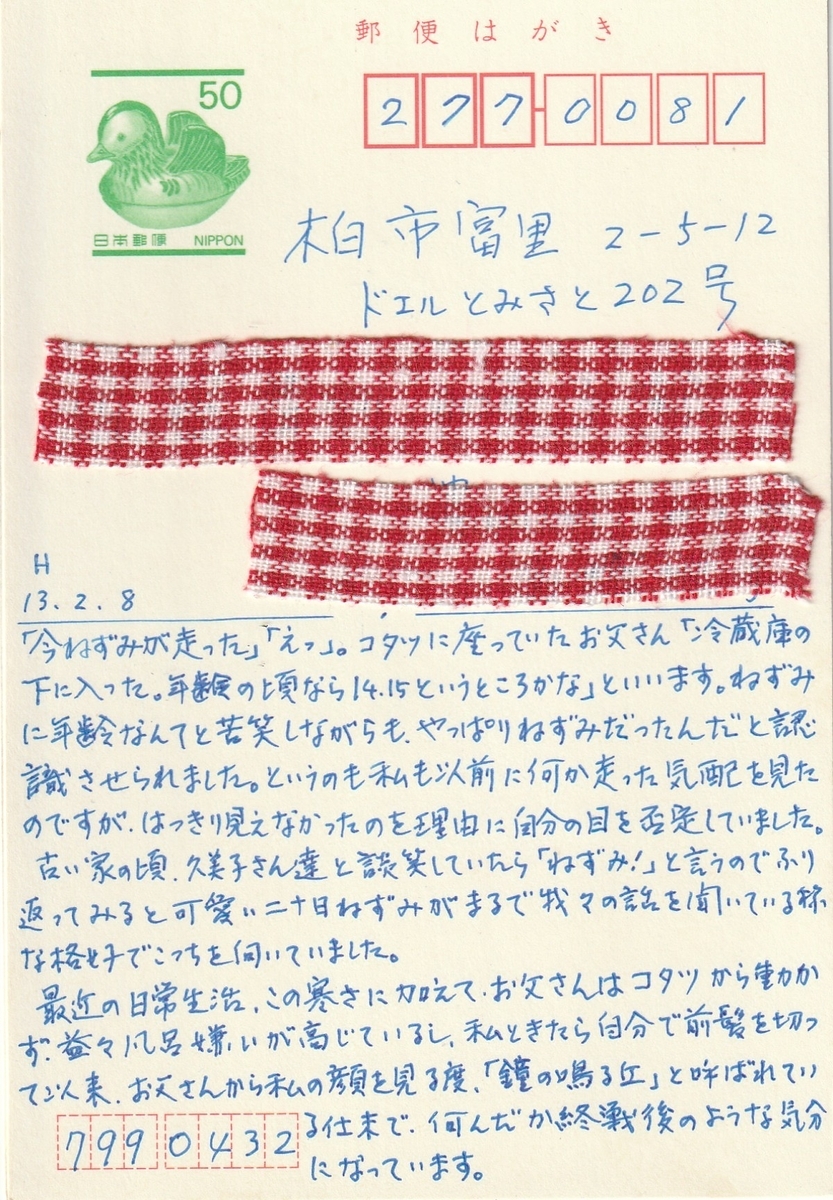 郵便はがき
50
日本郵便 NIPPON
277-0081
柏市富里 2-5-12
ドエルとみさと202号
H
13.2.8
「今ねずみが走った」「えっ」。コタツに座っていたお父さん「冷蔵庫の
下に入った。年齢の頃なら14.15というところかな」といいます。ねずみ
に年齢なんてと苦笑しながらも、やっぱりねずみだったんだと認
識させられました。というのも私も以前に何か走った気配を見た
のですが、はっきり見えなかったのを理由に自分の目を否定していました。
古い家の頃、久美子さん達と談笑していたら「ねずみ!」と言うのでふり
返ってみると可愛い二十日ねずみがまるで我々の話を聞いている様
な格好でこっちを伺いていました。
最近の日常生活、この寒さに加えて、お父さんはコタツから動か
ず、益々風呂嫌いが高じているし、私ときたら自分で前髪を切っ
て以来、お父さんから私の顔を見る度、「鐘の鳴る丘」と呼ばれてい
る仕末で、何んだか終戦後のような気分
になっています。
799 0432